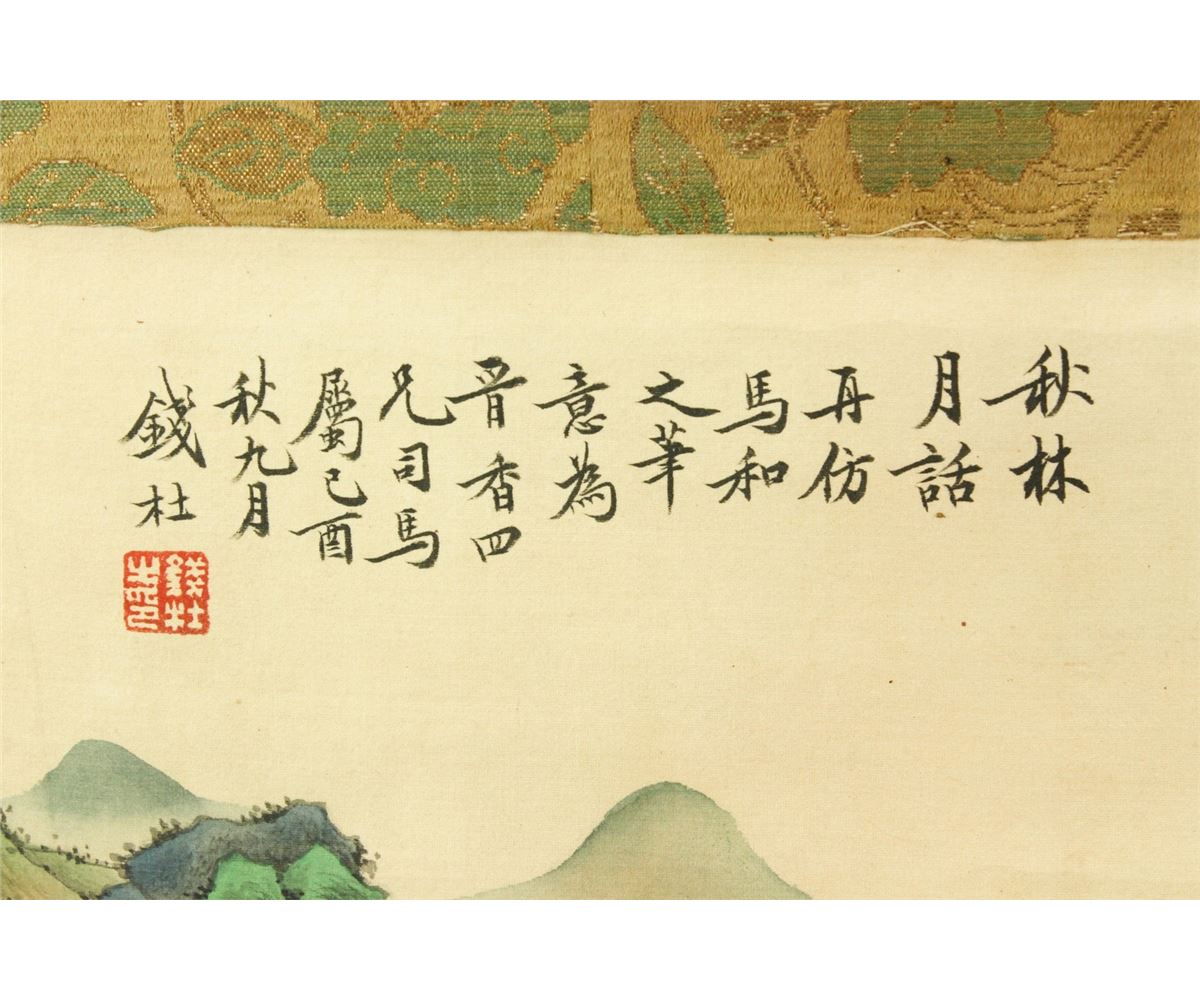 秋林
月話
再仿
馬和
之筆
意為
晋香四
兄司馬
屬己酉
秋九月
錢杜
錢杜